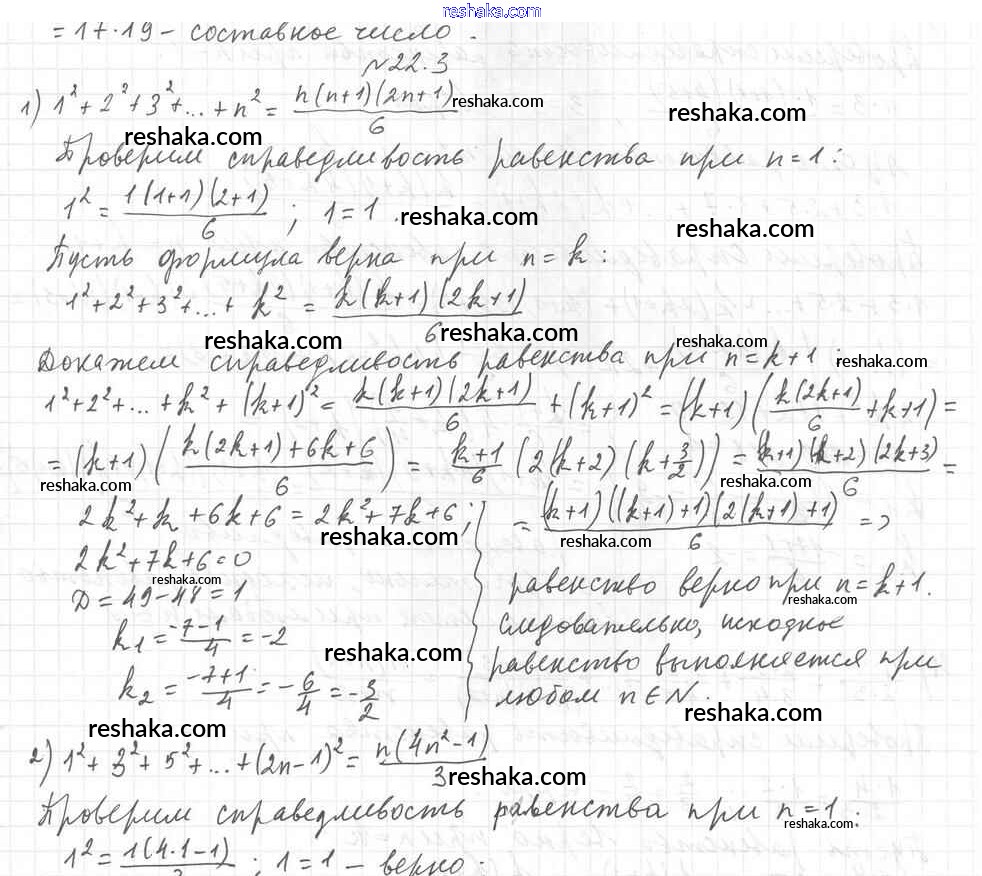 reshaka.com
= 17·19 – составное число.
№22.3
1) 1² + 2² + 3² + ... + n² = n(n+1)(2n+1)/6
reshaka.com
reshaka.com
reshaka.com
Проверим справедливость равенства при n=1:
1² = 1(1+1)(2+1)/6 ; 1=1.
reshaka.com
reshaka.com
Пусть формула верна при n=k:
1²+2²+3²+...+k² = k(k+1)(2k+1)/6
reshaka.com
reshaka.com
reshaka.com
Докажем справедливость равенства при n=k+1:
1²+2²+...+k²+(k+1)² = k(k+1)(2k+1)/6 + (k+1)² = (k+1)(k(2k+1)/6 + k+1) =
= (k+1)(k(2k+1)+6k+6/6) = k+1/6 (2(k+2)(k+3/2)) = (k+1)(k+2)(2k+3)/6 =
reshaka.com
reshaka.com
2k²+k+6k+6 = 2k²+7k+6;
reshaka.com
2k²+7k+6=0
reshaka.com
D = 49-48 = 1
k₁ = -7-1/4 = -2
reshaka.com
k₂ = -7+1/4 = -6/4 = -3/2
= (k+1)((k+1)+1)(2(k+1)+1)/6 =>
reshaka.com
равенство верно при n=k+1.
reshaka.com
Следовательно, исходное
равенство выполняется при
любом n∈N.
reshaka.com
reshaka.com
2) 1² + 3² + 5² + ... + (2n-1)² = n(4n²-1)/3
reshaka.com
Проверим справедливость равенства при n=1:
reshaka.com
1² = 1(4·1-1)/3 ; 1=1 – верно;